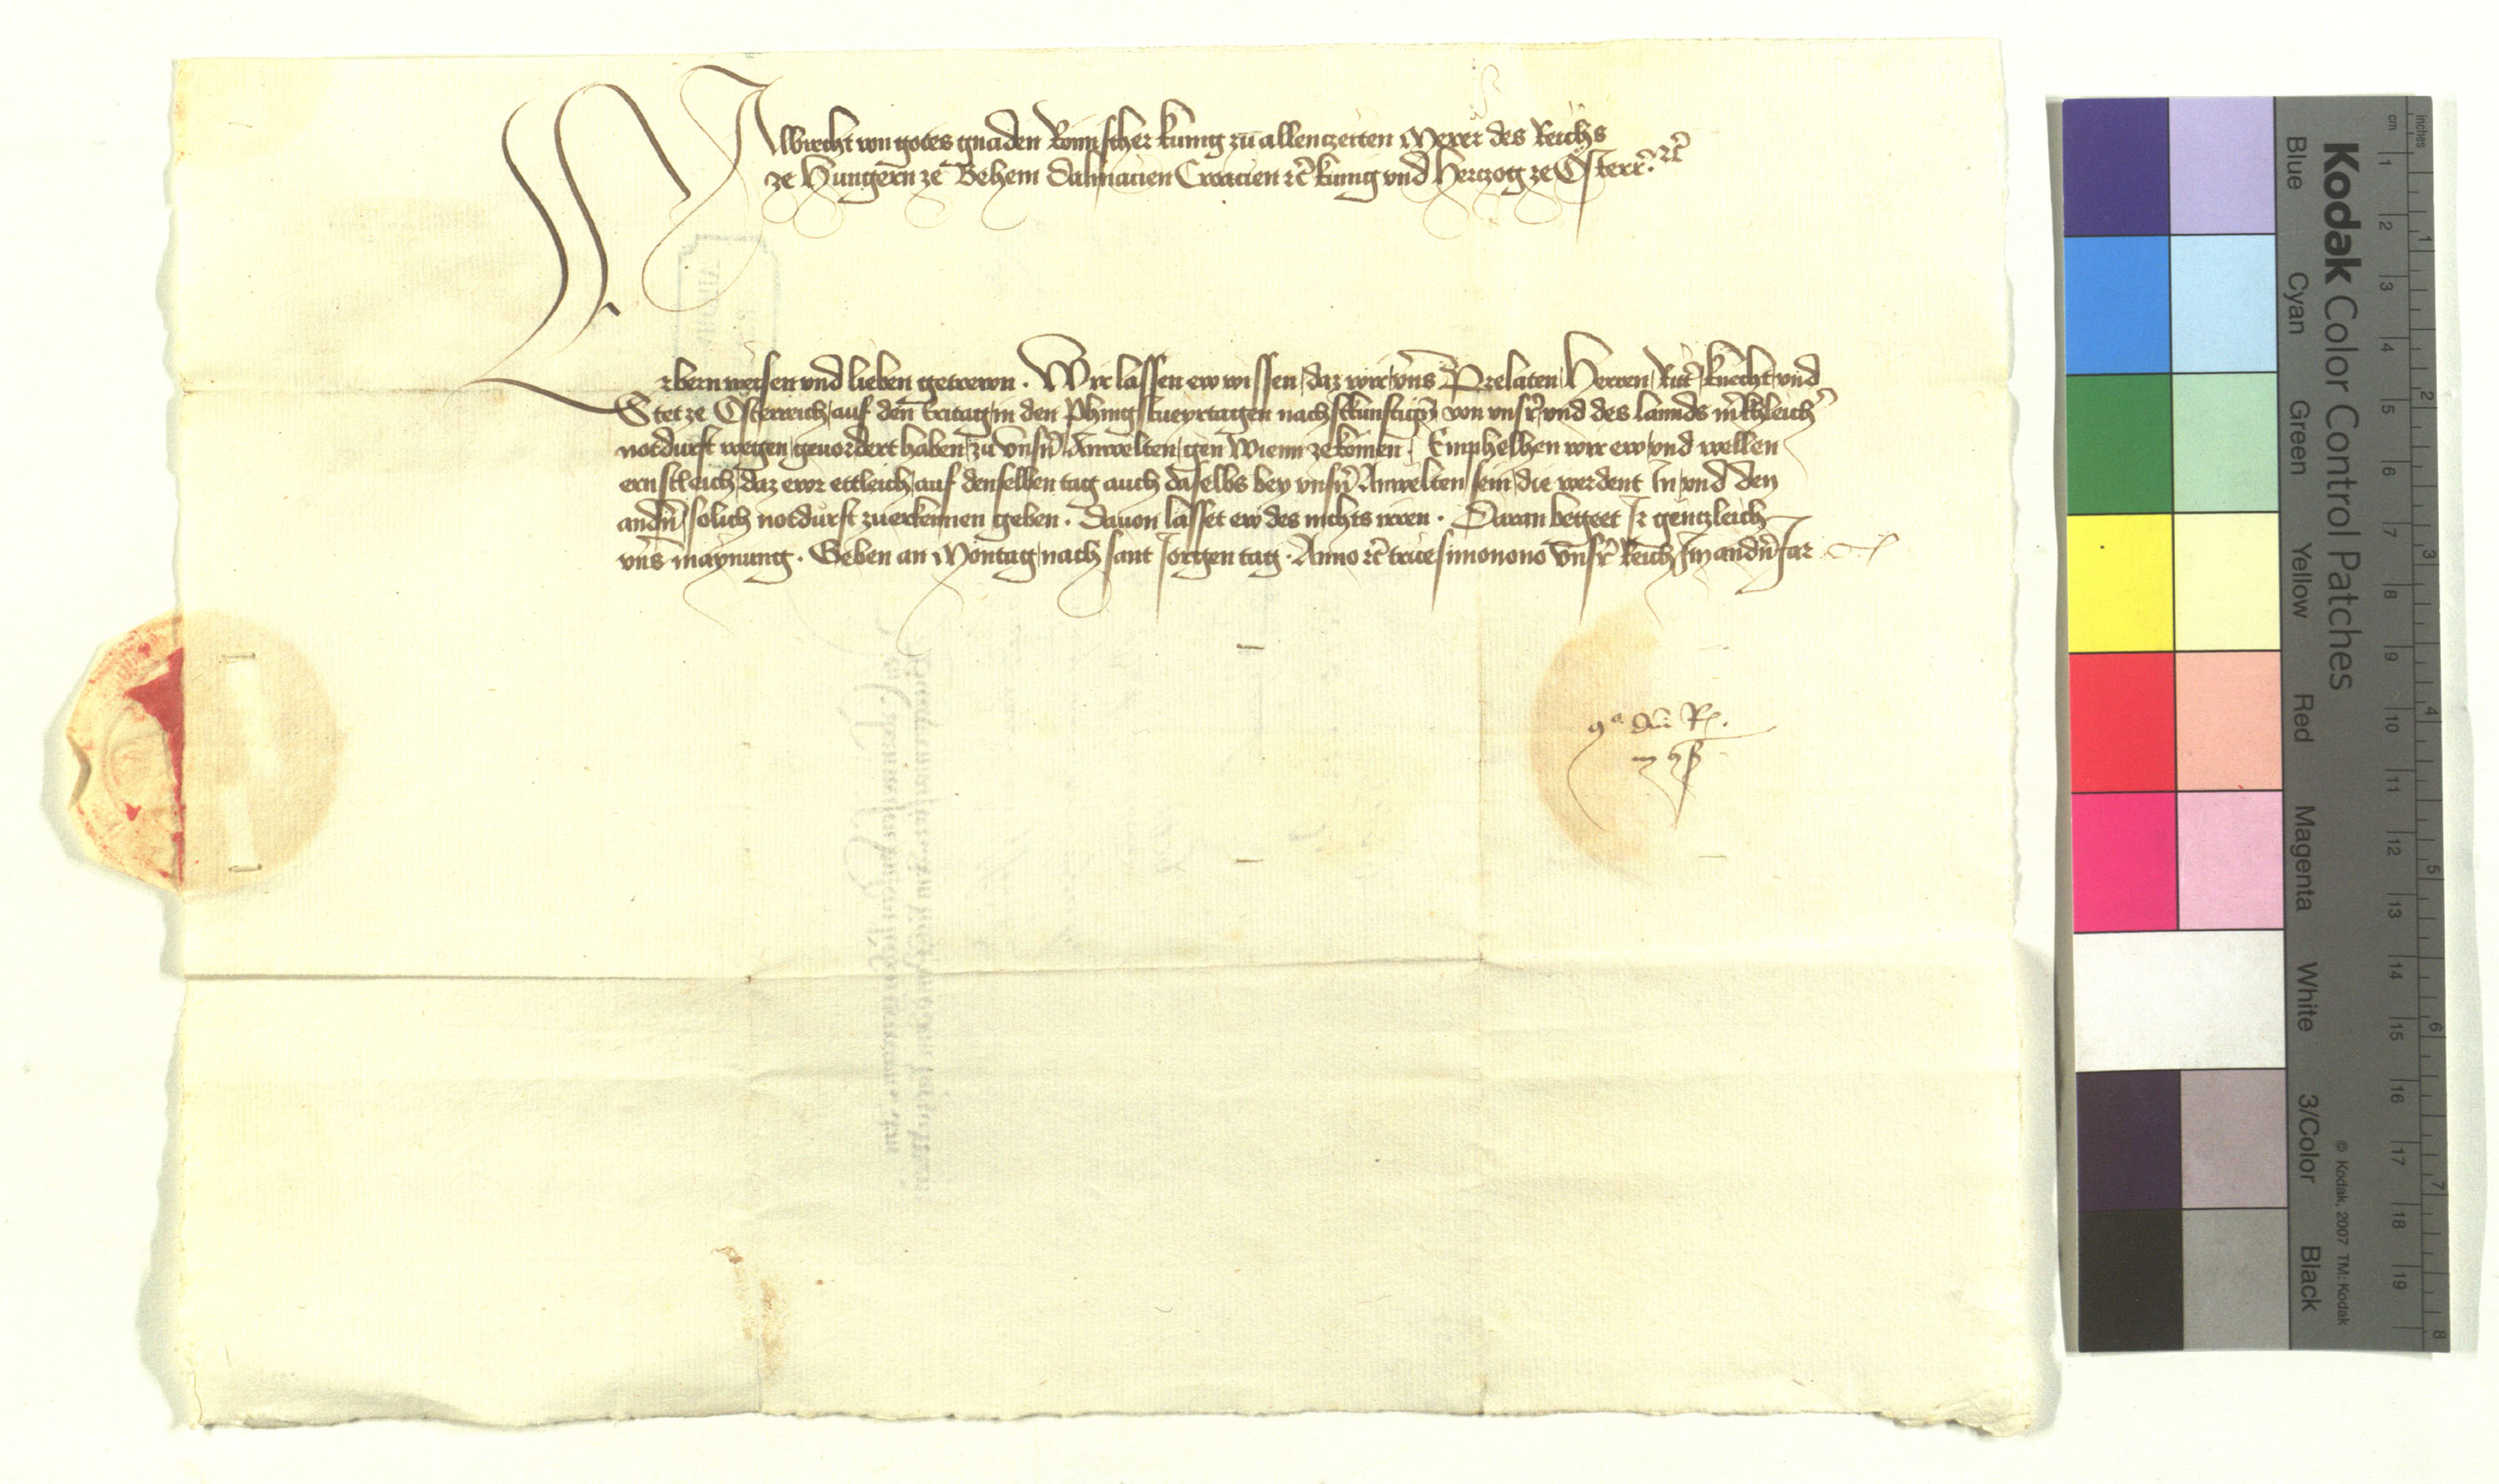 Albrecht von gotes gnaden Romischer kunig zu allenczeiten Merer des Reichs
ze Hungern ze Behem Dalmacien Croacien etc̃ kunig vnd Herczog ze Österr̃ etc̃
Erbern weisen vnd lieben getrewn. Wir lassen ew wissen, daz wir vnß Prelaten, Herren, Ritt̃ knecht, vnd
Stet ze Österreich, auf den freitag, in den Phingstueyrtagen nachstkunftigñ von vnsr̃, vnd des lannds m̃khleich̃
notdurft wegen, geuordert haben, zu vnsñ Anwelten, gen Wienn zekomen. Emphelhen wir ew, vnd wellen
ernstleich, daz ewr ettleich, auf denselben tag auch daselbs bey vnsñ Anwelten sein, die werdent In, vnd den
andñ, solich notdurft zuerkennen geben. Dauon lasset ew des nichts irren. Daran beget Ir genczleich
vnß maynung. Geben an Montag, nach sant Jorgen tag. Anno etc̃ tricesimonono Vnsr̃ Reich Im andñ Jar
dñs R.
Blue
Cyan
Green
Yellow
Red
Magenta
White
3/Color
Black
Kodak Color Control Patches
© Kodak, 2007 TM: Kodak
cm 1 2 3 4 5 6 7 8 9 10 11 12 13 14 15 16 17 18 19
inches 1 2 3 4 5 6 7 8